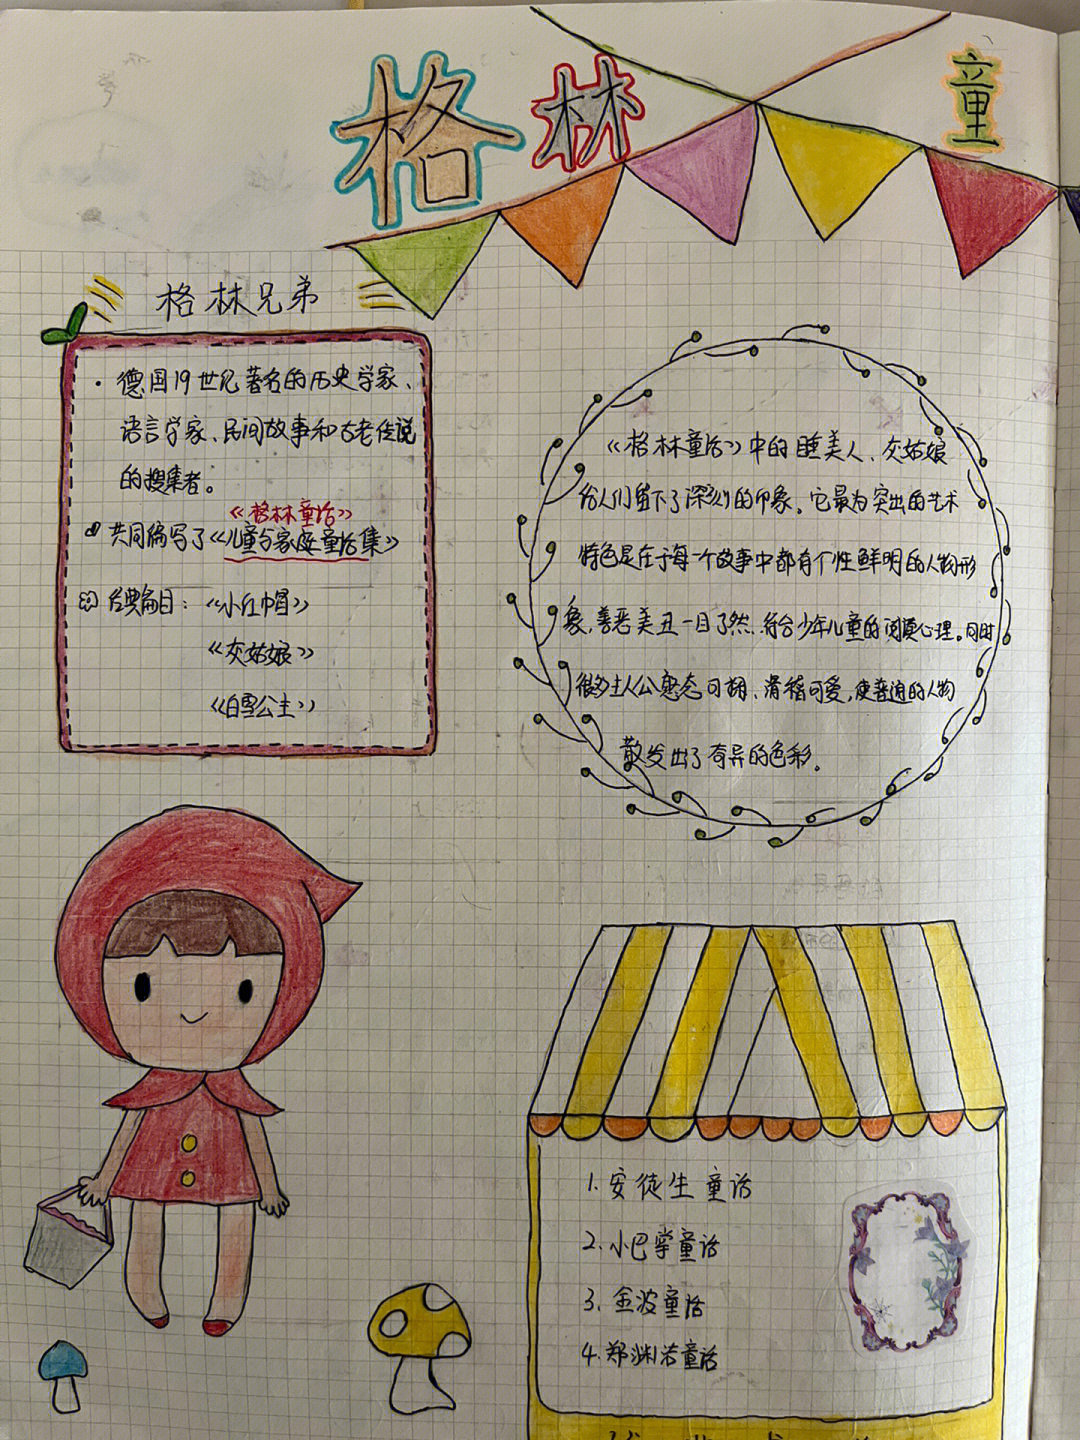 格林 童
格林兄弟
· 德国19世纪著名的历史学家、
语言学家、民间故事和古老传说
的搜集者。
《格林童话》
共同编写了《儿童与家庭童话集》
经典篇目：《小红帽》
《灰姑娘》
《白雪公主》
《格林童话》中的睡美人、灰姑娘
给人们留下了深刻的印象。它最为突出的艺术
特色是在于每一个故事中都有个性鲜明的人物形
象，善恶美丑一目了然，符合少年儿童的阅读心理。同时
很多主人公憨态可掬、滑稽可爱，使普通的人物
散发出了奇异的色彩。
1.安徒生童话
2.小巴掌童话
3.金波童话
4.郑渊洁童话